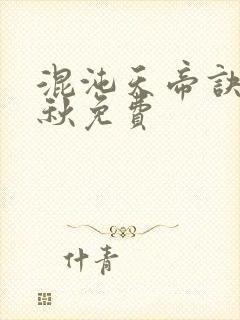 混沌天帝訣
秋免費
什青